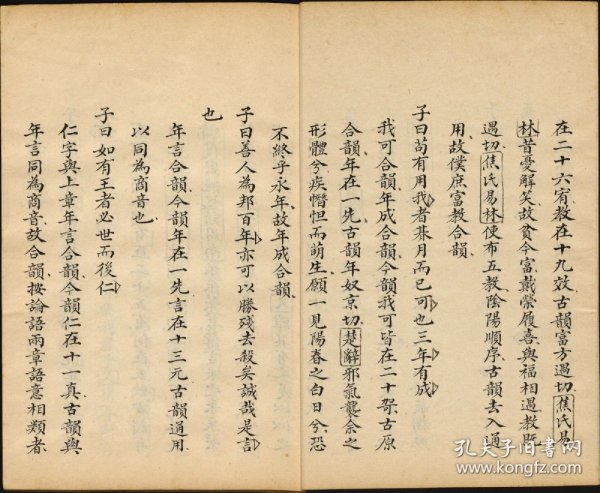 在二十六宥教在十九效古韻富方遇切焦氏易
林昔憂解笑故貧今富戴榮履喜與福相遇教
遇切焦氏易林使布五教陰陽順序古韻去入通
用故僕庶富教合韻
子曰苟有用我者朞月而已可也三年有成
我可合韻年成合韻今韻我可皆在二十哿古原
合韻年在一先古韻年奴京切楚辭邪氣襲余之
形體兮疾憯怛而萌生願一見陽春之白日兮恐
不終乎永年故年成合韻
子曰善人為邦百年亦可以勝殘去殺矣誠哉是言
也
年言合韻今韻年在一先言在十三元古韻通用
以同為商音也
子曰如有王者必世而後仁
仁字與上章年言合韻今韻仁在十一真古韻與
年言同為商音故合韻按論語兩章語意相類者
孔夫子旧书网
www.kongfz.com